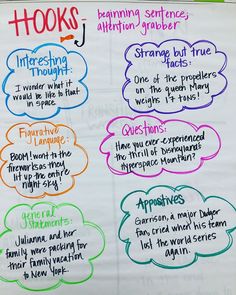 HOOKS-
beginning sentence;
attention grabber
Interesting
Thought:
I wonder what it
would be like to float
in space
Strange but true
facts:
One of the propellers
on the queen Mary
weighs 17 tons!
Figurative
Language:
BOOM! went to the
fireworks as they
lit up the entire
night sky!
Questions:
Have you ever experienced
the thrill of Disneyland's
Hyperspace Mountain?
general
Statements:
Julianna, and her
family were packing for
their family vacation
to New York.
Appositives
Garrison, a major Dodger
fan, cried when his team
lost the world series
again.